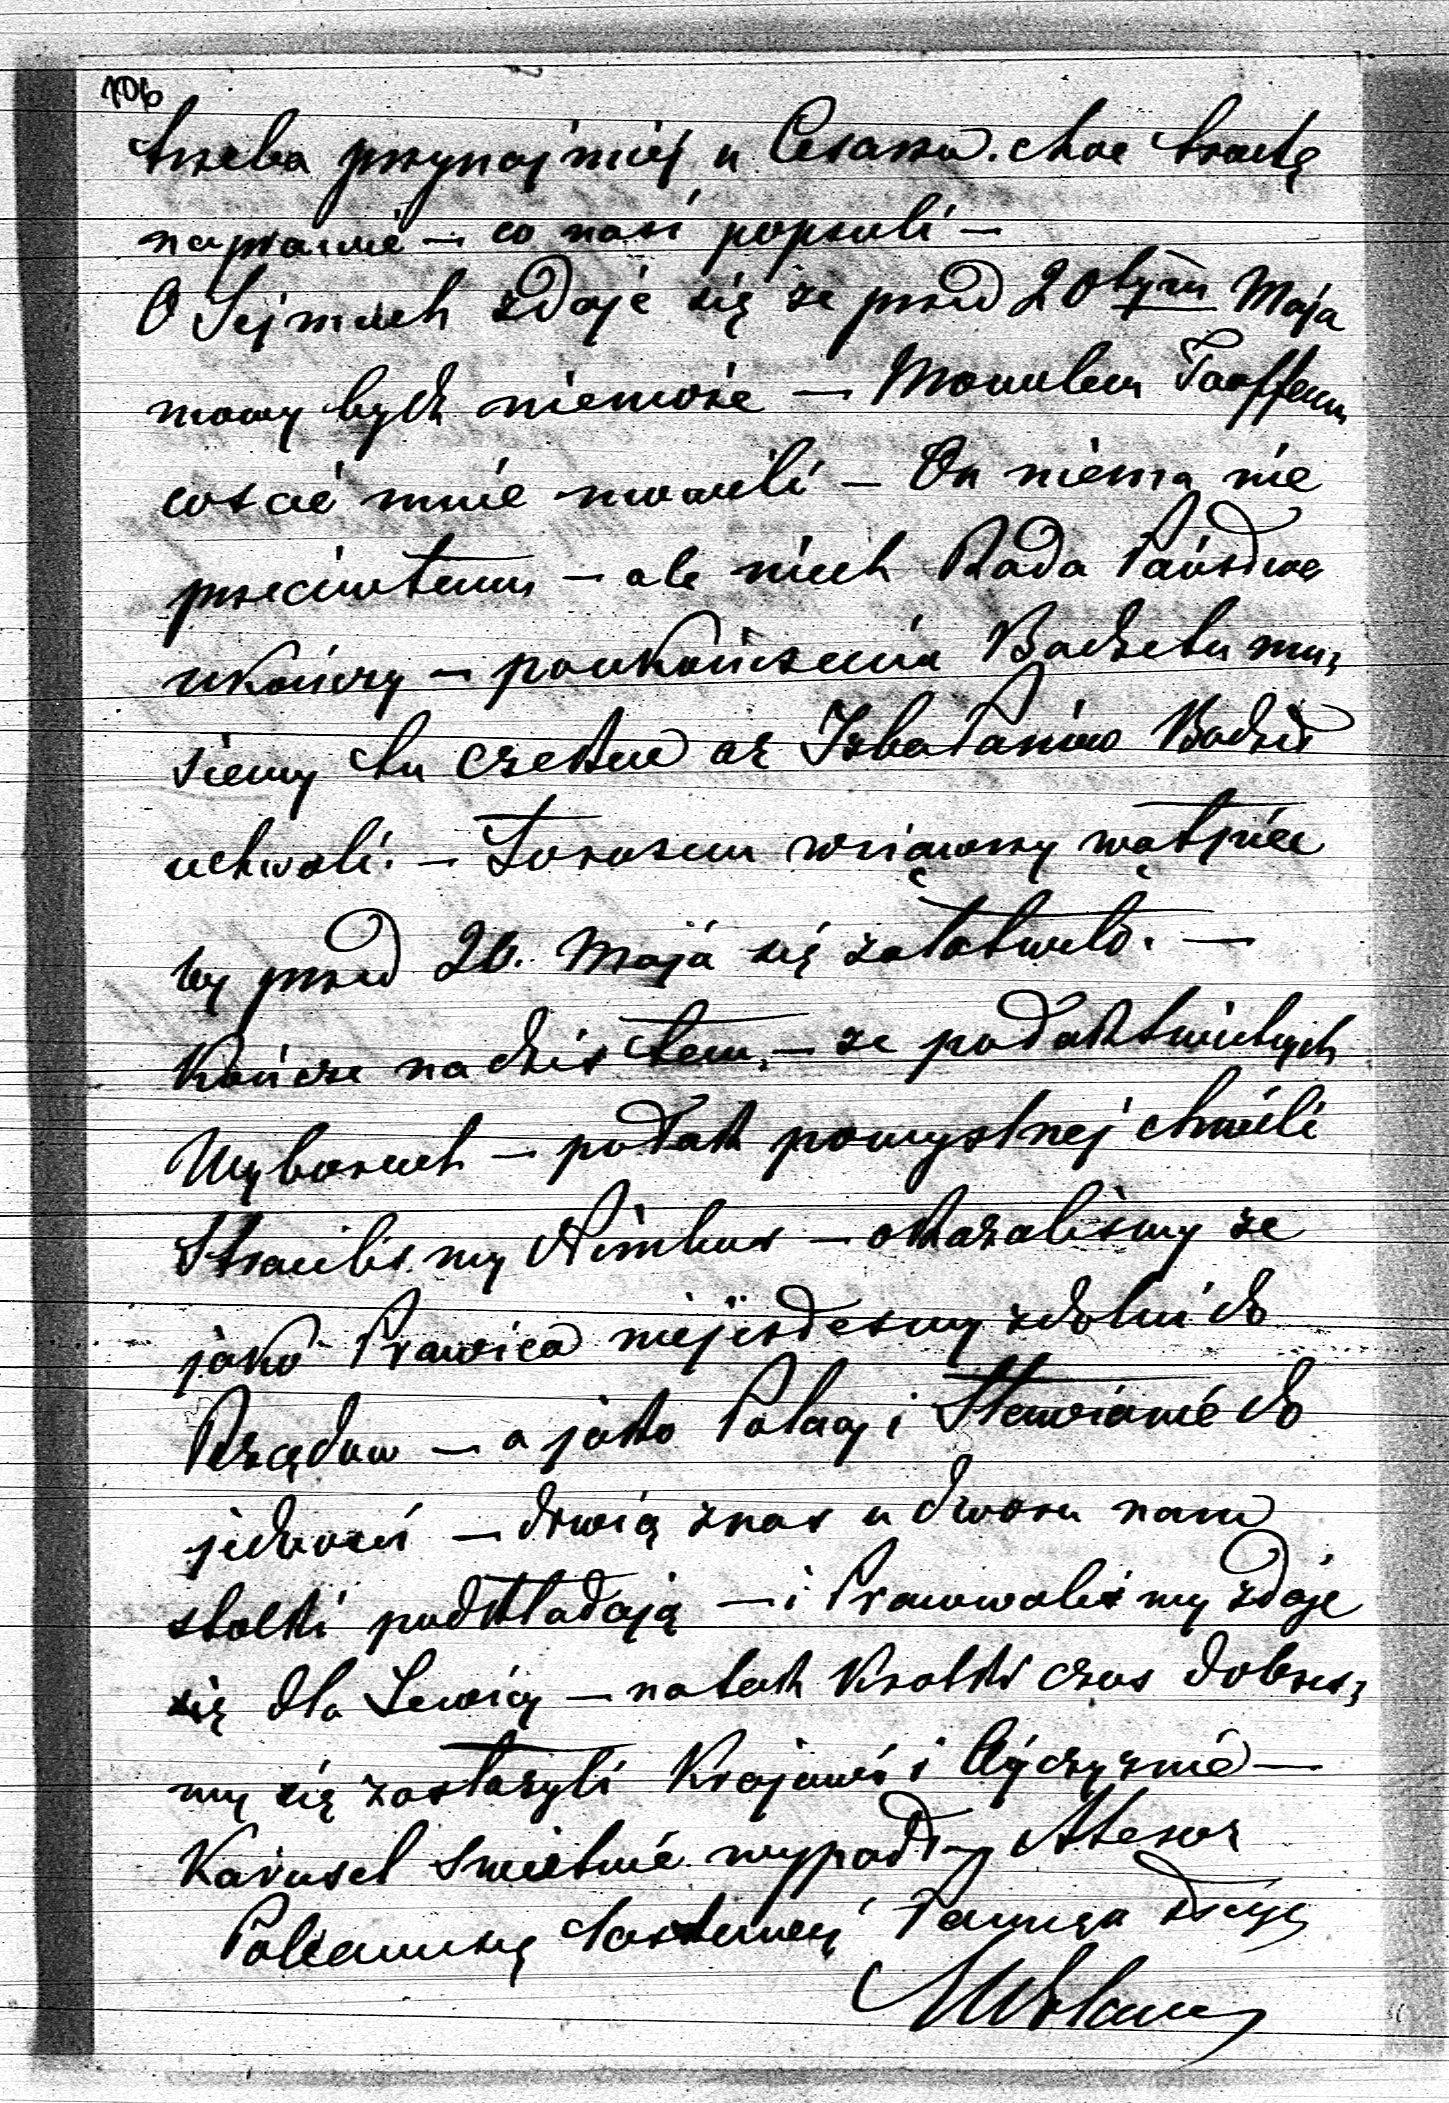 106
trzeba przynajmniej u Cesarza. choc troche
naprawić — co nasi popsuli —
O Sejmach zdaje się że przed 20tym Maja
mowy bydź niemoże — Mowulem Taaffem
coscie mnie mowili — On niema nic
przeciwtemu — ale niech Rada Państwa
ukończy — poukończeniu Budzetu mu,
siemy tu czekac aż Izba Panów Budzet
uchwali. — Torozum wziąwszy wątpiec
by przed 20. Maja się załatwiło. —
Kończe nadzis tem, — ze podaktwietnych
Wyborach — potak pomyslnej chwili
Stracilismy Nimbus — okazalismy ze
jako Prawica niejestesmy zdolni do
Rządow — a jako Polacy i Sławianie do
jednosci — drwią znas u dworu nam
stołki podkładają — i Pracowalismy zdaje
się dla Lewicy — natak Krotki czas dobrzes,
my się zasłużyli Krajowi i Ojczyznie —
Karusel swietnie wypadł —
Polecam się łaskawej Pamięci